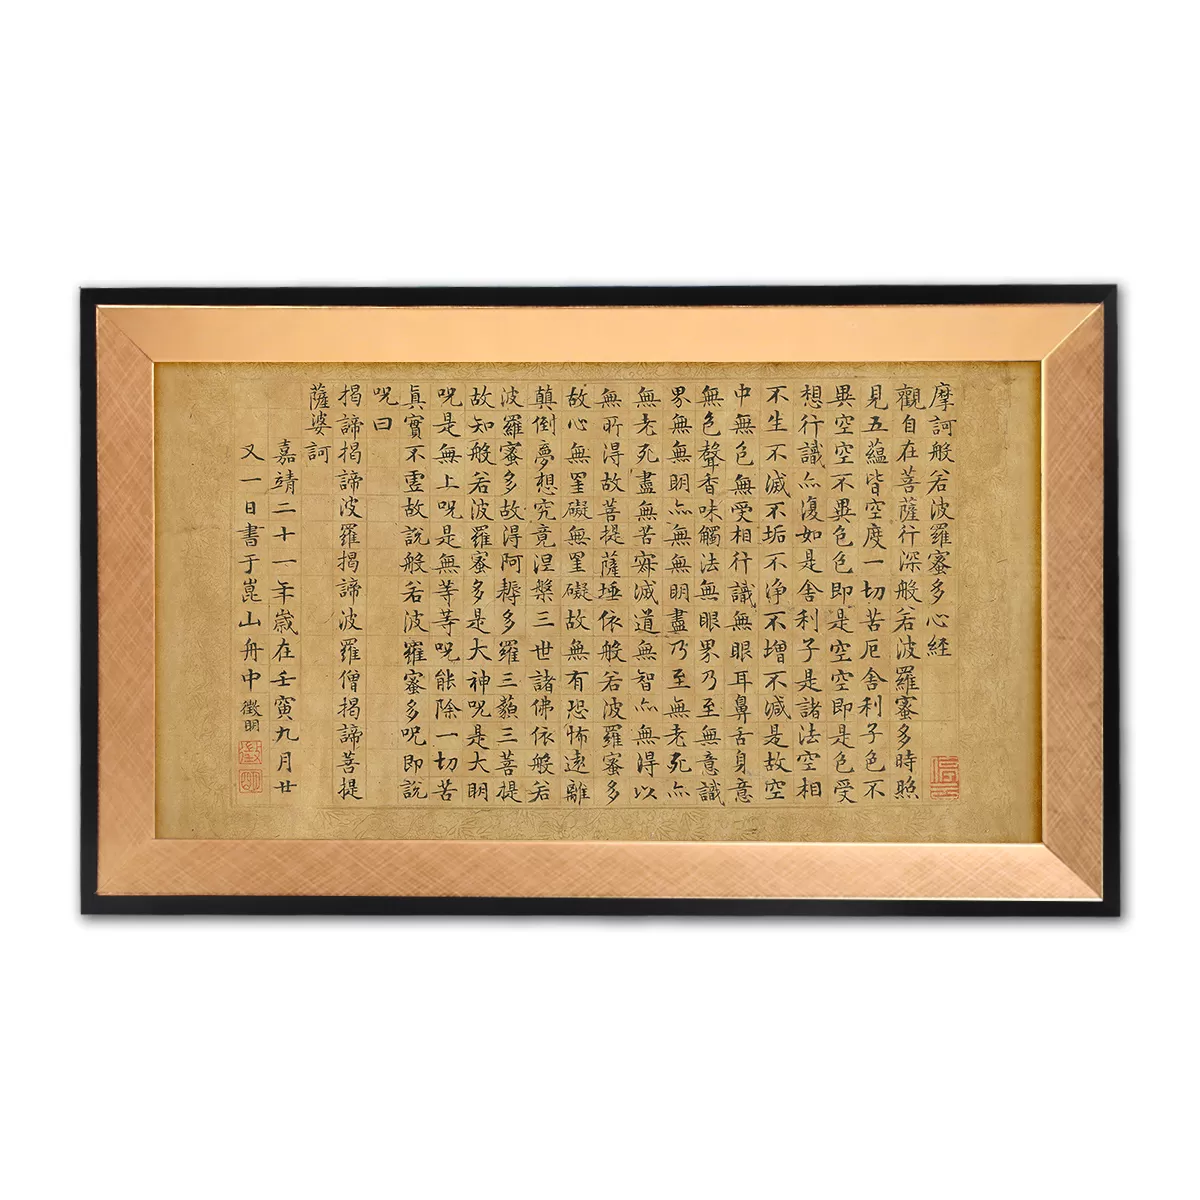 摩訶般若波羅蜜多心経
觀自在菩薩行深般若波羅蜜多時照
見五蘊皆空度一切苦厄舎利子色不
異空空不異色色即是空空即是色受
想行識亦復如是舎利子是諸法空相
不生不滅不垢不淨不增不減是故空
中無色無受相行識無眼耳鼻舌身意
無色聲香味觸法無眼界乃至無意識
界無無明亦無無明盡乃至無老死亦
無老死盡無苦寂滅道無智亦無得以
無所得故菩提薩埵依般若波羅蜜多
故心無罣礙無罣礙故無有恐怖遠離
顛倒夢想究竟涅槃三世諸佛依般若
波羅蜜多故得阿耨多羅三藐三菩提
故知般若波羅蜜多是大神呪是大明
呪是無上呪是無等等呪能除一切苦
真實不虛故說般若波羅蜜多呪即說
呪曰
揭諦揭諦波羅揭諦波羅僧揭諦菩提
薩婆訶
嘉靖二十一年歲在壬寅九月廿
又一日書于崑山舟中徵明
徵
明